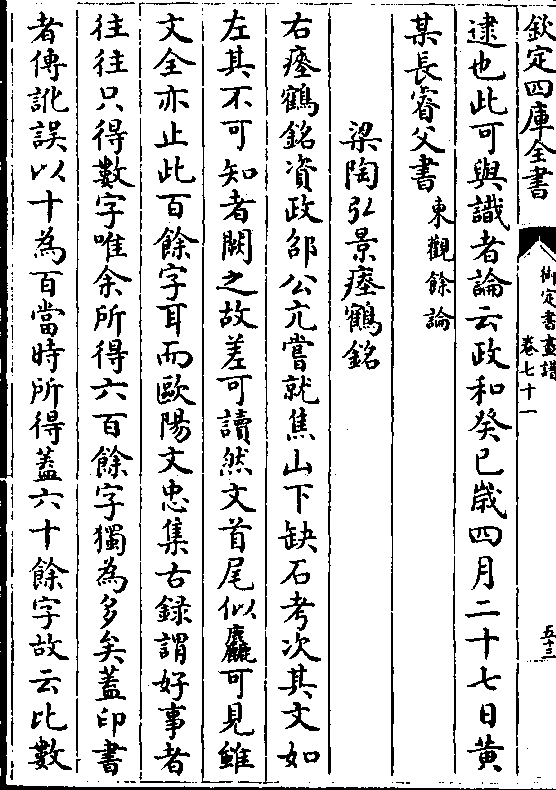 欽定四庫全書
御定書畫譜
卷七十一
五十三
逮也此可與識者論云政和癸巳歲四月二十七日黄
某長睿父書東觀餘論
梁陶弘景瘞鶴銘
右瘞鶴銘資政邵公亢嘗就焦山下缺石考次其文如
左其不可知者闕之故差可讀然文首尾似麤可見雖
文全亦止此百餘字耳而歐陽文忠集古録謂好事者
往往只得數字唯余所得六百餘字獨為多矣蓋印書
者傳訛誤以十為百當時所得蓋六十餘字故云比數